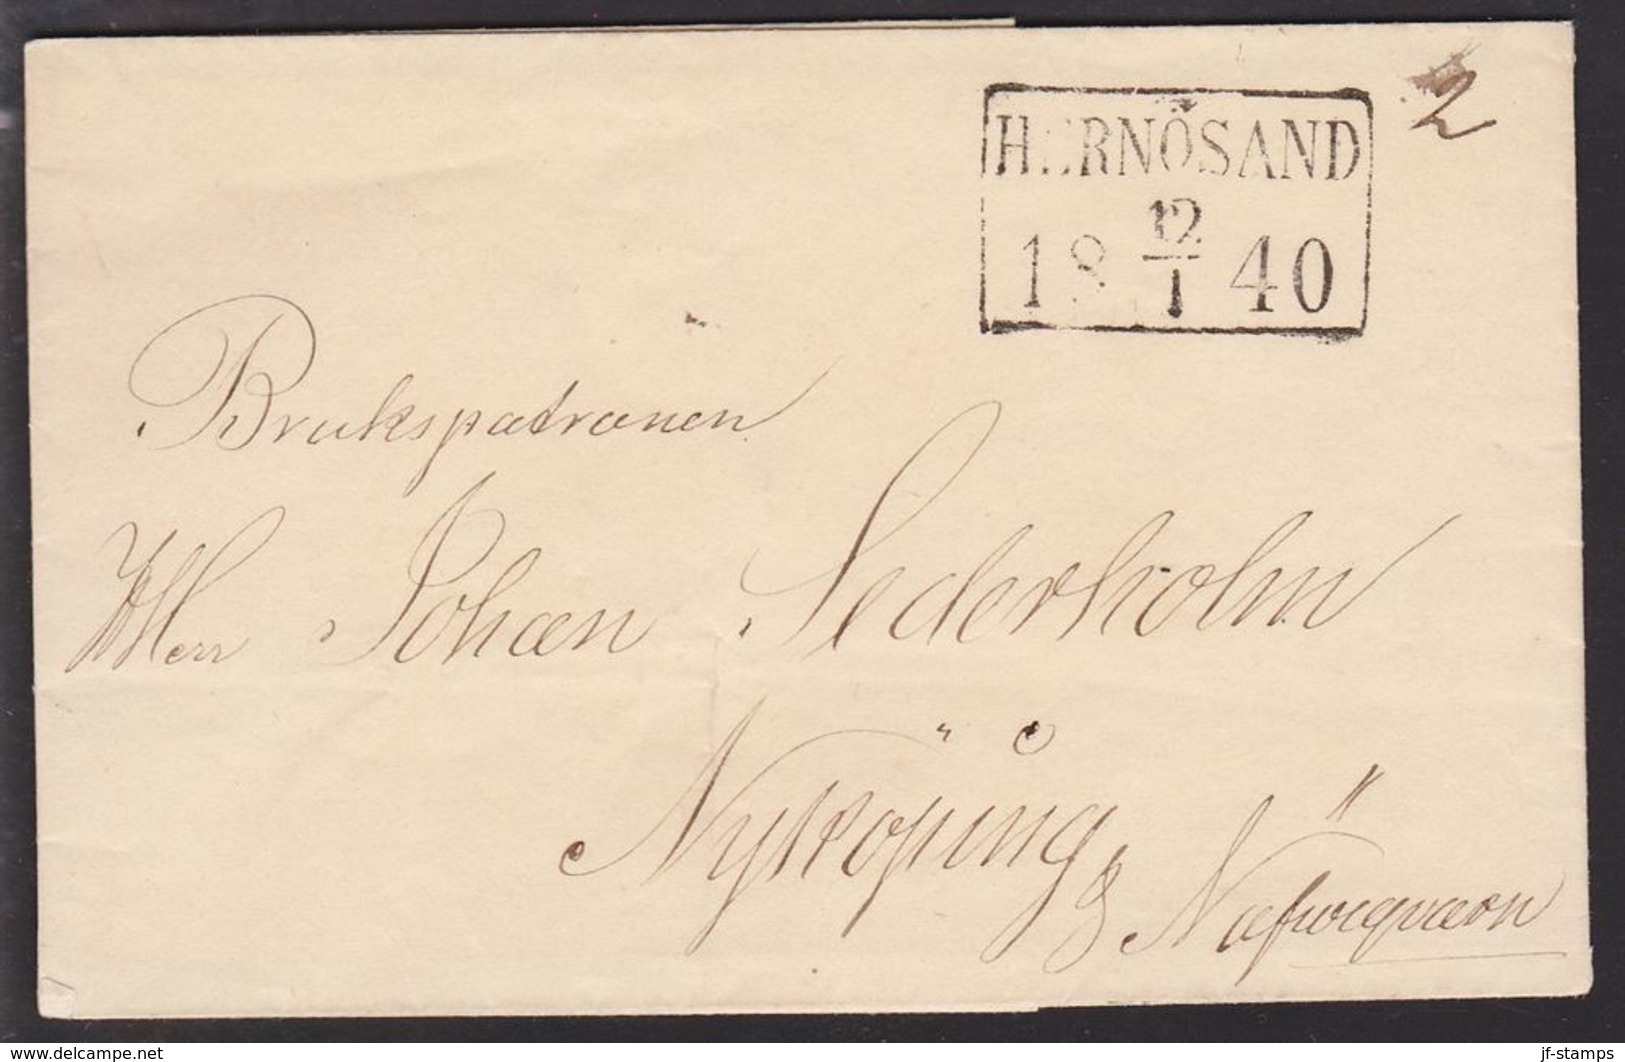 2
HERNÖSAND
12
18 1 40
Brukspatronen
Herr Johan Sederholm
Nyköping & Näfveqvarn
www.delcampe.net
jf-stamps